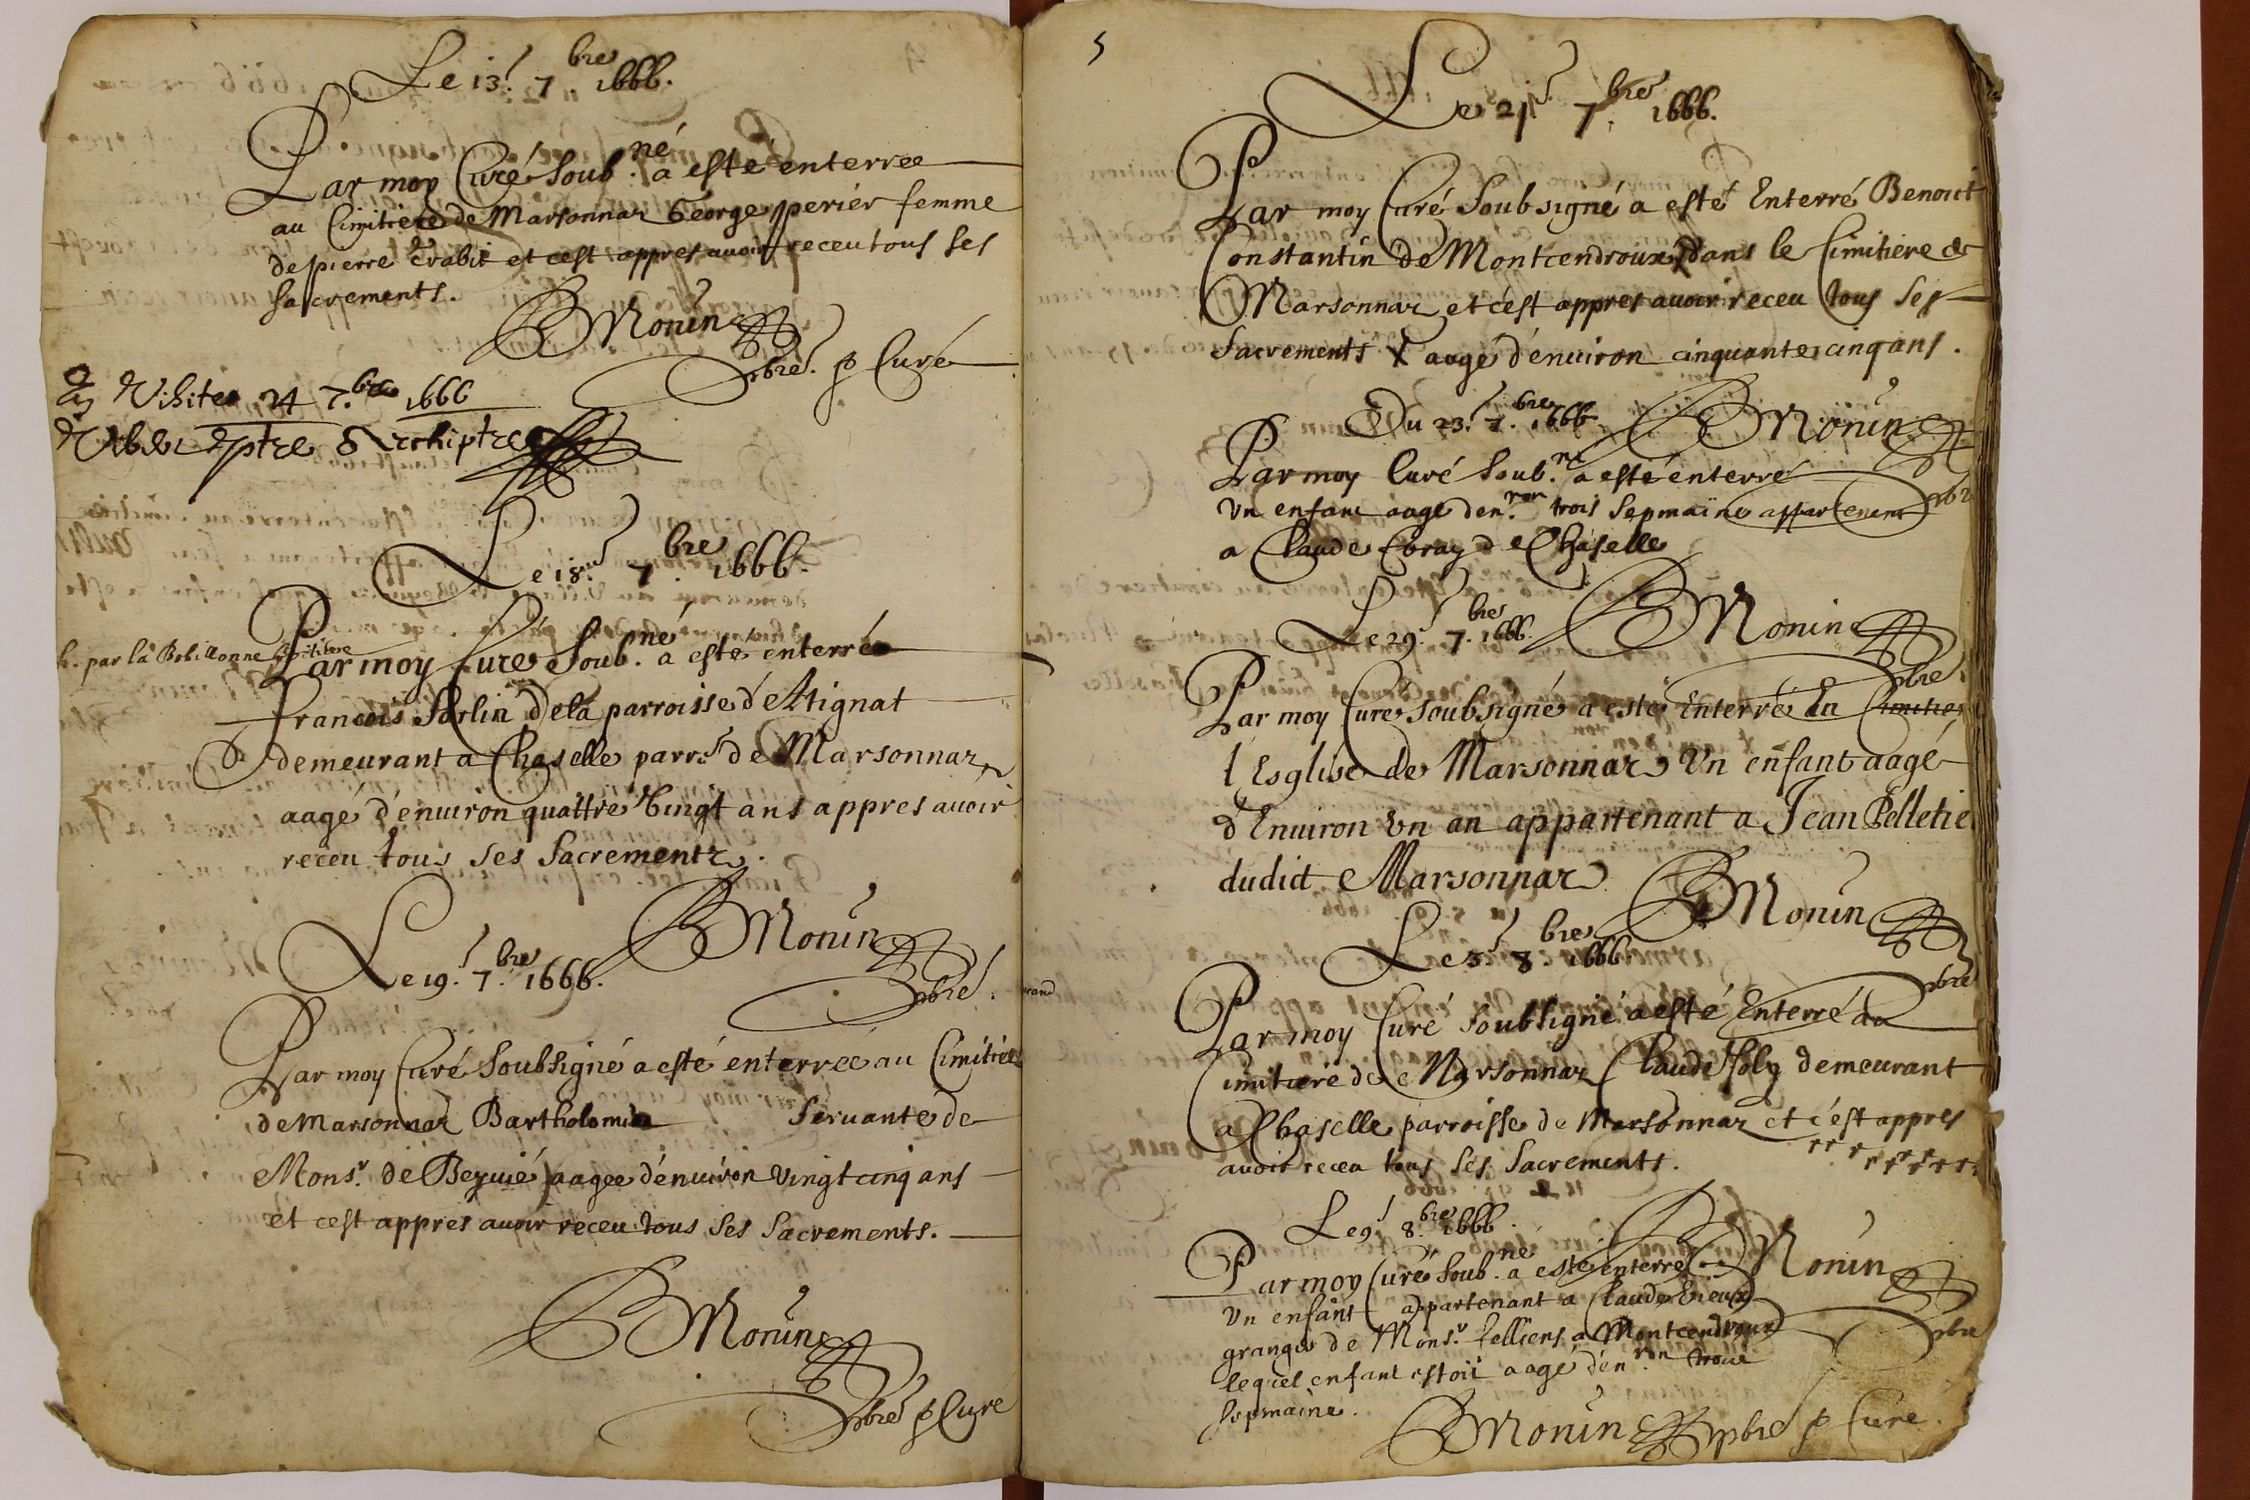 Le 13.e 7.bre 1666.
Par moy Curé Soub.né a esté enterree
au Cimitiere de Marsonnaz George perier femme
de pierre et c'est appres avoir receu tous ses
Sacrements.
BMonin
pbre. p Curé
Visite 24 7.bre 1666
Archiptre
Le 18.me 7.bre 1666.
par la
Par moy Curé Soub.né a esté enterré
francois de la parroisse d'Attignat
demeurant a Chaselle parr.e de Marsonnaz
aagé d'enuiron quattre Vingt ans appres auoir
receu tous ses Sacrements.
BMonin
pbre.
Le 19.e 7.bre 1666.
Par moy Curé Soubsigné a esté enterree au Cimitiere
de Marsonnaz Bartholomie Seruante de
Mons.r de aagee d'enuiron Vingt cinq ans
et c'est appres auoir receu tous ses Sacrements.
BMonin
pbre p Cure
5
Le 21.e 7.bre 1666.
Par moy Curé Soubsigné a esté Enterré Benoict
Constantin de Montcendroux dans le Cimitiere de
Marsonnaz et c'est appres auoir receu tous Ses
Sacrements aagé d'enuiron cinquante cinq ans.
Du 23.e 7.bre 1666.
BMonin
Par moy Curé Soub.né a esté enterré
Vn enfant aagé d'en.ron trois Sepmaine appartenant
pbr
a Claude de Chaselle
Le 29.e 7.bre 1666.
BMonin
pbre.
Par moy Curé Soubsigné a esté Enterré En Cimitie
l'Esglise de Marsonnaz Vn enfant aagé
d'Enuiron Vn an appartenant a Jean Pelletie
dudict Marsonnaz
BMonin
pbre
Le 3.e 8.bre 1666
Par moy Curé Soubsigné a esté Enterré au
Cimitiere de Marsonnaz Claude demeurant
a Chaselle parroisse de Marsonnaz et c'est appres
auoir receu tous Ses Sacrements.
Le 9.e 8.bre 1666.
BMonin
pbre
Par moy Curé Soub.né a esté enterré
Vn enfant appartenant a Claude
granger de Mons.r a Montcendroux
lequel enfant estoit aagé d'en.ron trois
Sepmaine.
BMonin pbre p Curé.